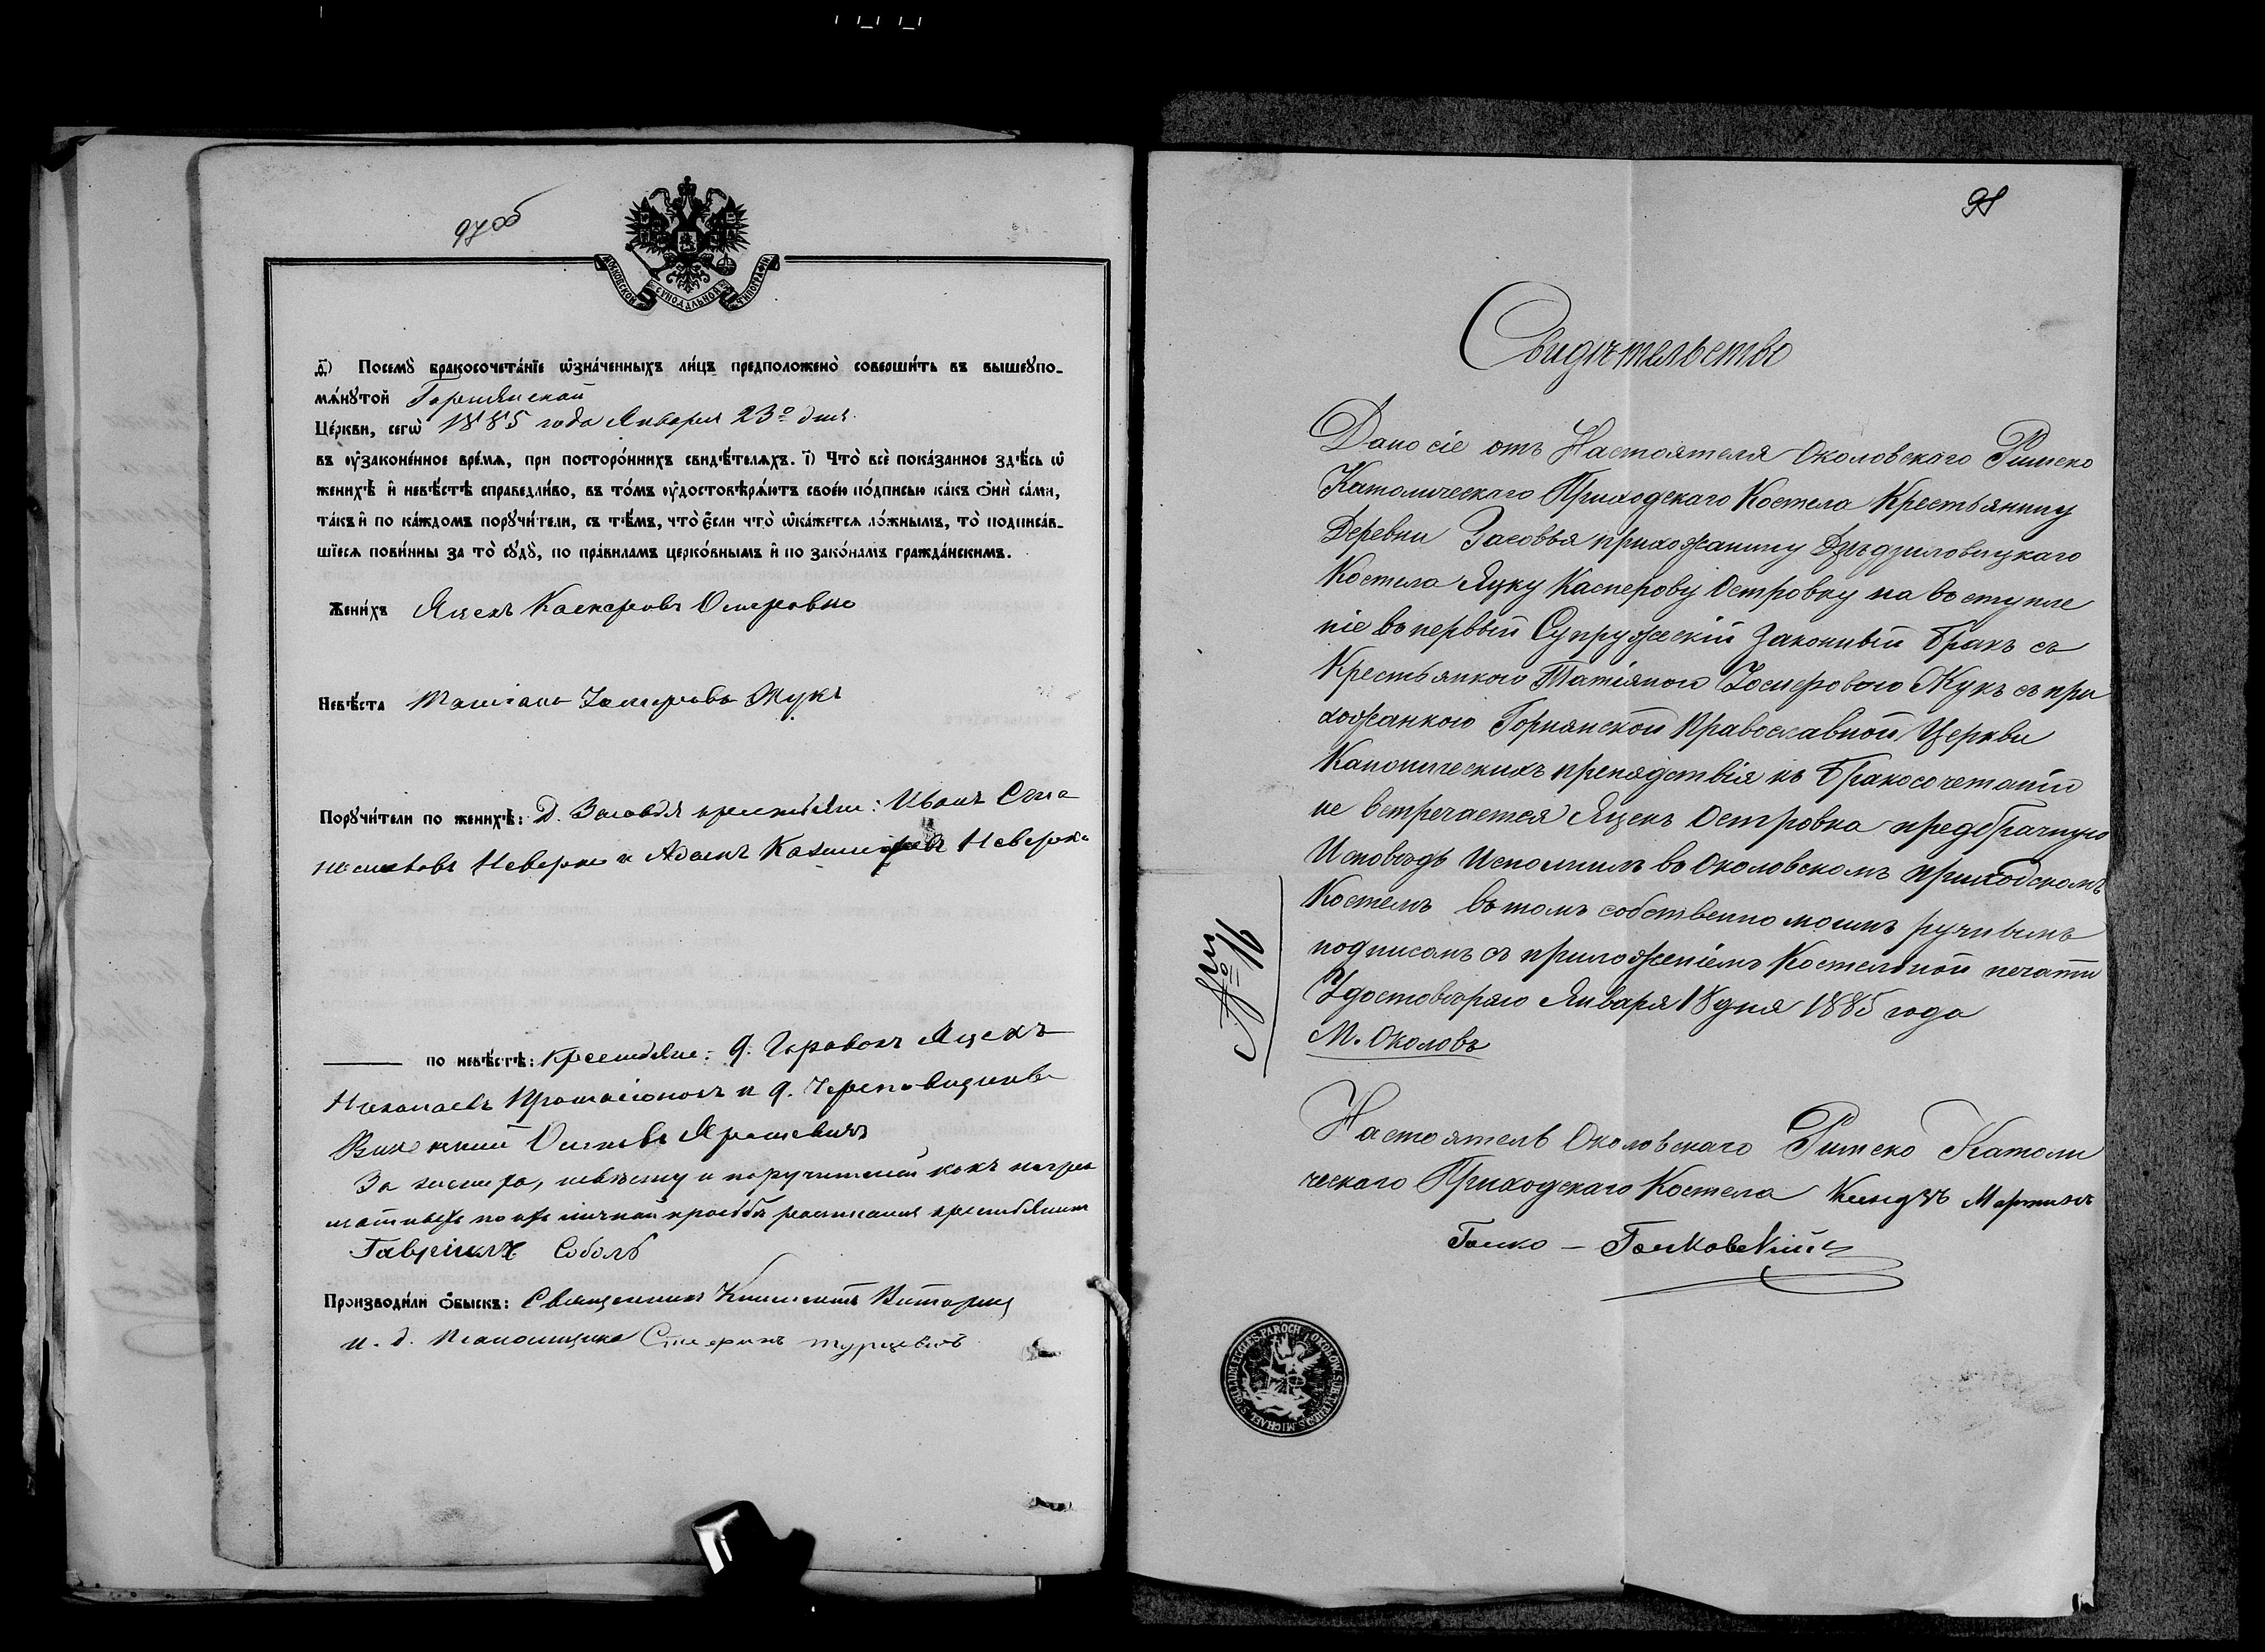 97об
МОСКОВСКОЙ СѴНОДАЛЬНОЙ ТИПОГРАФІИ
д҃) Посемꙋ̀ бракосочета́нїе ѡ҆зна́ченныхъ ли́цъ предположено̀ соверши́ть въ вышеꙋпо-
мѧ́нꙋтой Горнянской
Це́ркви, сегѡ̀ 1885 года Января 23º дня
въ ᲂу҆законе́нное вре́мѧ, при посторо́ннихъ свидѣ́телѧхъ. і҃) Что̀ всѐ пока́занное здѣ́сь ѡ҆
женихѣ̀ и҆ невѣ́стѣ справедли́во, въ то́мъ ᲂу҆достовѣрѧ́ютъ свое́ю по́дписью ка́къ ѻ҆нѝ са́ми,
та́къ и҆ по ка́ждомъ порꙋчи́тели, съ тѣ́мъ, что̀ є҆́сли что̀ ѡ҆ка́жетсѧ ло́жнымъ, то̀ подписа́в-
шїесѧ пови́нны за то̀ сꙋдꙋ̀, по пра́виламъ церко́внымъ и҆ по зако́намъ гражда́нскимъ.
Жени́хъ Яцекъ Касперовъ Островко
Невѣ́ста Татіана Іосифова Жукъ
Порꙋчи́тели по женихѣ̀: Д. Засовья крестьяне: Иванъ
Неверко и Адамъ Казимировъ Неверко
по невѣ́стѣ: Крестьяне: д. Яцекъ
Николаевъ и д.
Викентій Осиповъ Ярошевичъ
За жениха, невѣсту и поручителей какъ неграм
отныхъ по ихъ личной просьбѣ росписался крестьянинъ
Гавріилъ Соболь
Производи́ли ѻ҆́быскъ: Священникъ Климентъ
и. д. псаломщика Стефанъ Турцевичъ
98
Свидѣтельство
Дано сіе отъ Настоятеля Околовскаго Римско
Католическаго Приходскаго Костела Крестьянину
Деревни Засовья прихожанину Дзѣдзиловицкаго
Костела Яцку Касперову Островку на во ступле
ніе во первый Супружескій Законный бракъ съ
Крестьянкою Татіяною Іосиφовою Жукъ съ при
хожанкою Горнянской Православной Церкви
Каноническихъ препядствія къ бракосочетанію
не встречается Яцекъ Островка предбрачную
Исповѣдь Исполнилъ во Околовскомъ приходскомъ
Костелѣ въ томъ собственно моимъ ручнымъ
подписомъ съ приложеніемъ Костельной печати
Удостовѣряю Января 18 дня 1885 года
М. Околовъ
№ 16
Настоятель Околовскаго Римско Католи
ческаго Приходскаго Костела Ксендзъ Мартинъ
SIGILLUM ECCLES. PAROCH. OKOLOW. MICHAEL